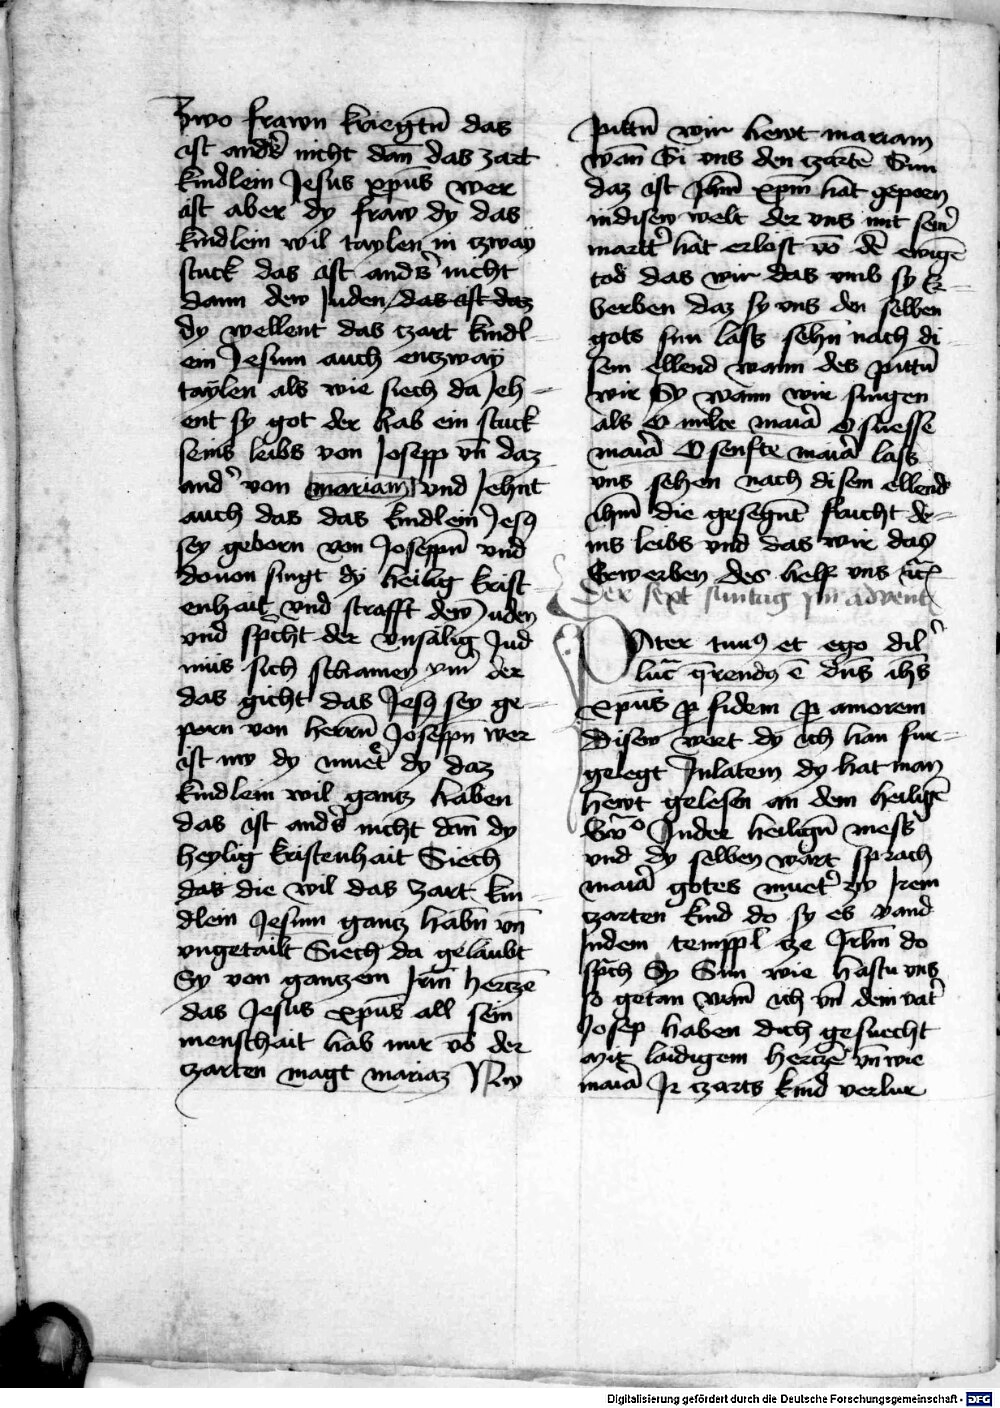 Zwo frawn kriegtn̄ das
ist andʾs nicht dan̄ das zart
kindlein Jesus xp̄us wer
ist aber dy fraw dy das
kindlein wil taylen in czway
stuck das ist andsʾ nicht
dann dew Juden das ist daz
dy wellent das czart kindl-
ein Jesum auch enczway
taylen als wie siech da Jeh-
ent sy got der hab ein stuck
seins leibs von Josepp vn̄ daz
andʾ von mariam vnd Jehnt
auch das das kindlein Jesꝰ
sey geborn von Joseppn̄ vnd
douon singt dy heilig krist
enhait vnd strafft dew Juden
vnd spᵒcht der vnsälig Jud
mus sich schamen ym̄ der
das gicht das Jesꝰ sey ge-
porn von herrn̄ Joseppn wer
ist nw dy muetʾ dy daz
kindlein wil gantz haben
das ist andʾs nicht dan̄ dy
heylig kristenhait Siech
das die wil das zart kin-
dlein Jesum gantz habn̄ vn̄
vngetailt Siech da gelaubt
Sy von gantzem Irm̄ hertzē
das Jesus xp̄us all sein
menschait hab nur vō der
czarten magt mariaz Nw
pittn̄ wir hewt mariam
wan̄ Si vns den czartē Sun
daz ist Jhm̄ xp̄m hat geporn
in disew welt der vns mit seinʾ
marttʾ hat erlost vō dē ewigē
tod das wir das vmb sy Er-
berben daz sy vns den selben
gots sun lass sehn̄ nach di-
sem ellend wann des pittn̄
wir Sy wann wir singen
als O milte maiā O suesse
maiā O senfte maiā lass
vns sehen nach disem ellend
ihm̄ die gesegn̄t frucht de-
ins leibs vnd das wir das
Erwerben des helf vns
Der sext suntag im aduent
Pater tuus et ego dil
luc̄ q̄rendꝰ ē dn̄s ih̄s
xp̄us ꝑ fidem ꝑ amorem
Disew wort dy ich han fur-
gelegt Inlatein dy hat man
hewt gelesen an dem heiligē
Ew̄o Inder heilign̄ mess
vnd dy selben wort sprach
maiā gotes muetʾ zw Irem
czarten kind do sy es vand
Indem temppl̄ cze Irlm̄ do
spᵃch Sy Sun wie hastu vns
so getan wan̄ ich vn̄ dein vatʾ
Josep haben dich gesuecht
Mit laidigem hertzē vn̄ wie
maiā Ir czarts kind verlur
Digitalisierung gefördert durch die Deutsche Forschungsgemeinschaft - DFG